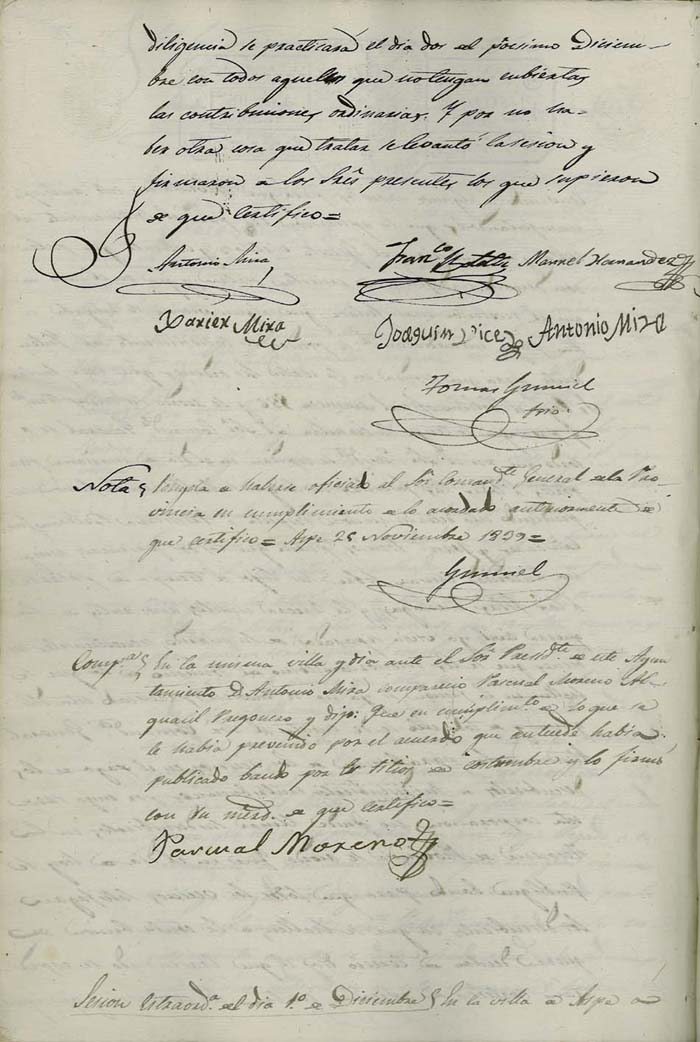 diligencia se practicará el dia dos del procsimo Diciem-
bre con todos aquellos que no tengan cubiertas
las contribuciones ordinarias. Y por no ha-
ber otra cosa que tratar se levantó la sesion y
firmaron a los Srês presentes los que supieron
de que certifico=
Antonio Mira
Franco Manuel Hernandez
Xavier Mira
Joaquin Antonio Mira
Tomas Grumiel
Srio.
Nota
de haberse oficiado al Sor Comandte General de la Pro-
vincia en cumplimiento de lo acordado anteriormente de
que certifico= Aspe 25 Noviembre 1839=
Grumiel
Compa En la misma villa y dia ante el Sor Presidte de este Ayun-
tamiento D. Antonio Mira comparecio Pascual Moreno Al-
guacil Pregonero y dijo: Que en cumplimto de lo que se
le habia prevenido por el acuerdo que antecede habia
publicado bando por los sitios de costumbre y lo firmó
con su merd. de que certifico=
Pascual Moreno
Sesion extraorda del dia 1º de Diciembre En la villa de Aspe a